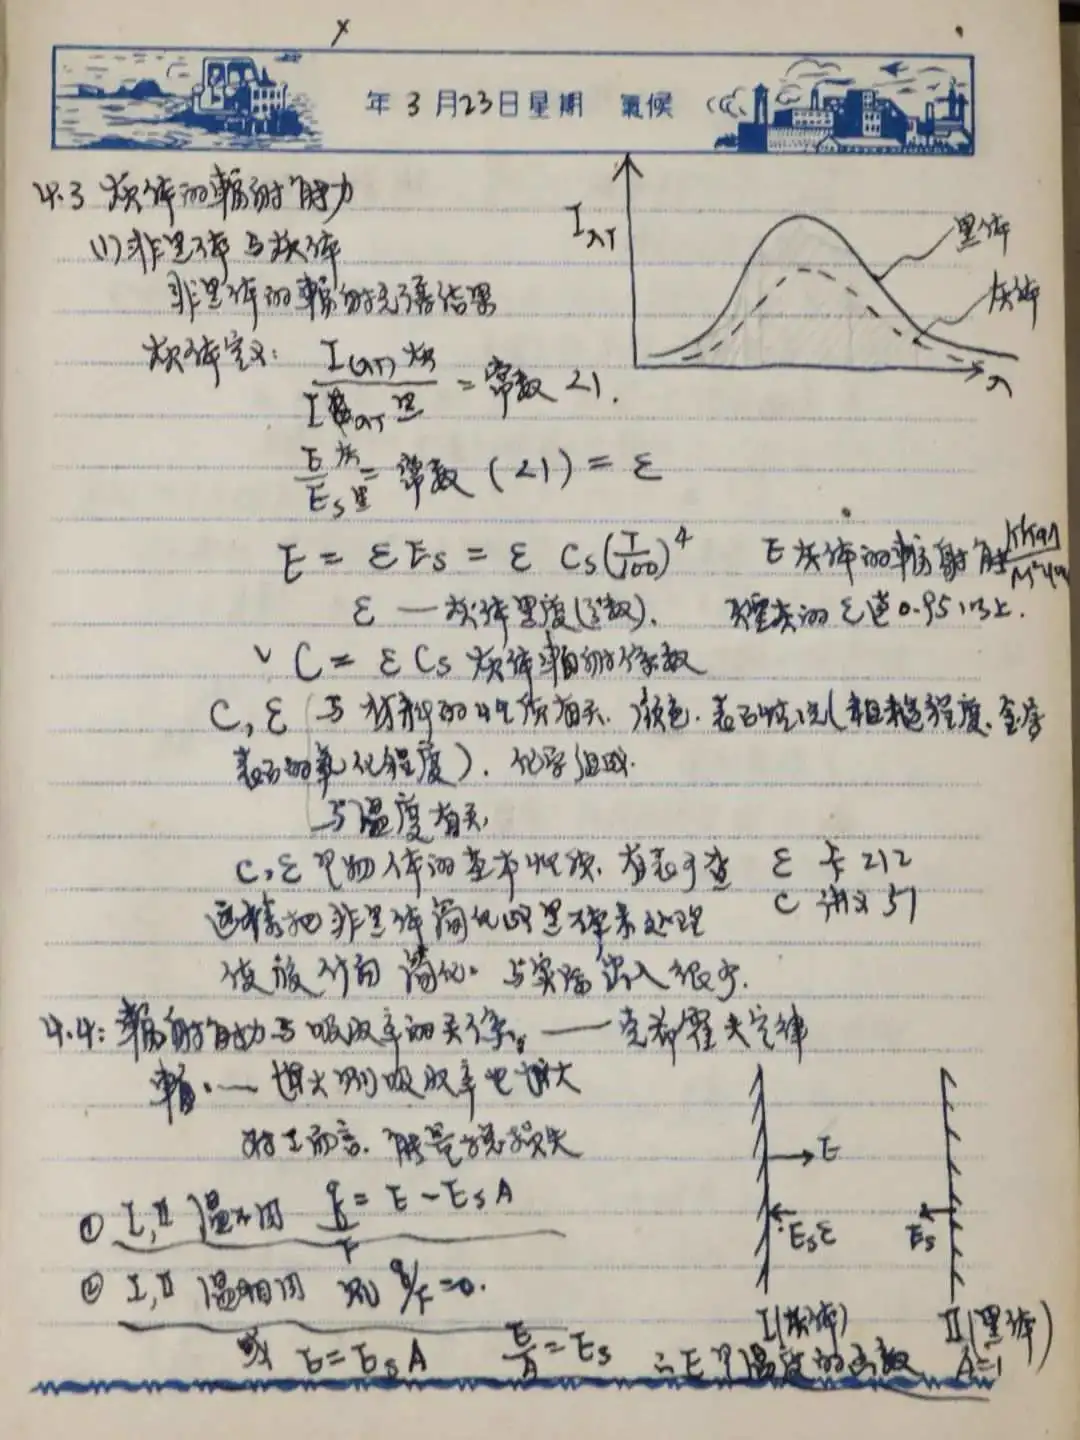 年 3 月 23 日 星期 氣候
4.3 灰体的辐射能力
(1) 非黑体与灰体
非黑体的辐射光谱结果
I λT
黑体
灰体
λ
灰体定义: I(λT)灰 / I λT 黑 = 常数 <1.
E灰 / Es黑 = 常数 (<1) = ε
E = εEs = ε Cs(T/100)^4 E 灰体的辐射能
ε — 灰体黑度(系数). 的 ε 达 0.95 以上.
C = εCs 灰体辐射系数
C, ε 与材料的性质有关. 颜色. 表面情况(粗糙程度. 金属
表面的氧化程度). 化学组成.
与温度有关.
C, ε 是物体的基本性质. 有表可查 ε 212
这样把非黑体简化以黑体来处理 C 讲义 51
简化. 与实际出入很少.
4.4: 辐射能力与吸收率的关系. —— 克希霍夫定律
辐. — 增大则吸收率也增大
对 I 而言. 能量 损失
① I, II 温不同 q/F = E - EsA
② I, II 温相同 则 q/F = 0.
或 E = EsA E/A = Es ∴ E 是温度的函数
E
Esε
Es
I (灰体)
II (黑体)
A=1